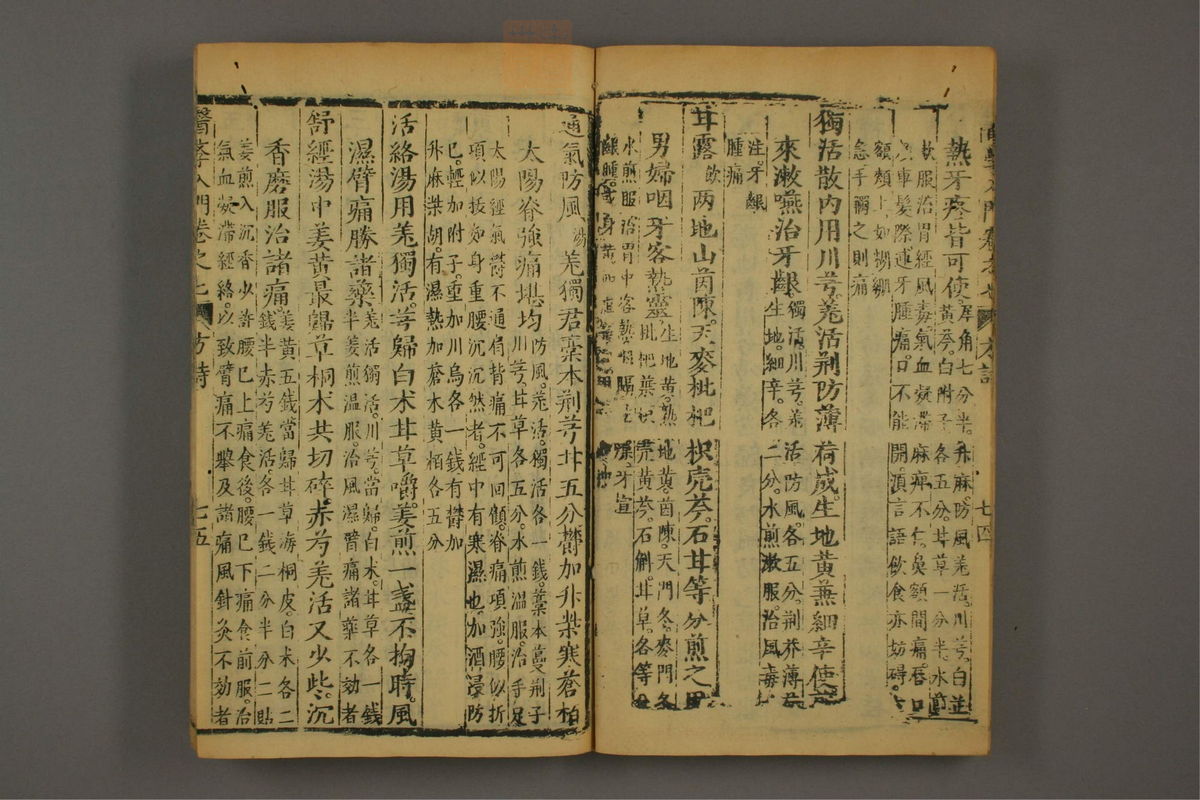 熱牙疼皆可使
犀角七分半。升麻。防風。羌活。川芎。白並
黃芩。白附子各五分。甘草一分半。水煎
漱服。治胃經風毒氣血凝滯麻痺不仁。鼻額間痛。唇口
車髮際連牙腫痛。口不能開。言語飲食亦妨碍。
額頰上如糊繃
急。手觸之則痛
獨活散內用川芎。羌活荆防薄荷咸生地黃兼細辛使
來漱嚥治牙齦
獨活。川芎。羌活防風。各五分。荆芥薄荷
生地。細辛。各二分。水煎漱服。治風毒
注。牙齦
腫痛
甘露飲两地山茵陳。天麥枇杷枳壳芩。石甘等分煎之用
男婦咽牙客熱靈
生地黃。熟地黃。茵陳。天門冬。麥門冬
枇杷葉。枳壳。黃芩。石斛。甘草。各等分
水煎服。治胃中客熱
齦腫
牙宣
七四
通氣防風湯羌獨君藁本荆芎甘五分鬱加升柴寒蒼柏
太陽脊強痛堪均
防風。羌活。獨活各一錢。藁本。蔓荆子
川芎。甘草各五分。水煎溫服。治手足
太陽經氣鬱不通。肩背痛不可回顧。脊痛項強。腰似折
項似拔。如身重。腰沉沉然者。經中有寒濕也。加酒浸防
已。輕加附子。重加川烏各一錢。有鬱加
升麻柴胡。有濕熱。加蒼木黃栢各五分
活絡湯用羌獨活。芎歸白术甘草嚼。姜煎一盞不拘時。風
濕臂痛勝諸藥
羌活。獨活。川芎。當歸。白术。甘草各一錢
半。姜煎溫服。治風濕臂痛。諸藥不効者
舒經湯中姜黃最。歸草桐术共切碎。赤芍羌活又少些。沉
香磨服治諸痛
姜黃五錢。當歸。甘草。海桐皮。白术各二
錢半。赤芍。羌活。各一錢二分半。分二貼
姜煎。入沉香少許。腰已上痛食後。腰已下痛食前服。治
氣血凝滯經絡。以致臂痛不舉。及諸痛風。針灸不効者
醫學入門卷之七
方詩
七五